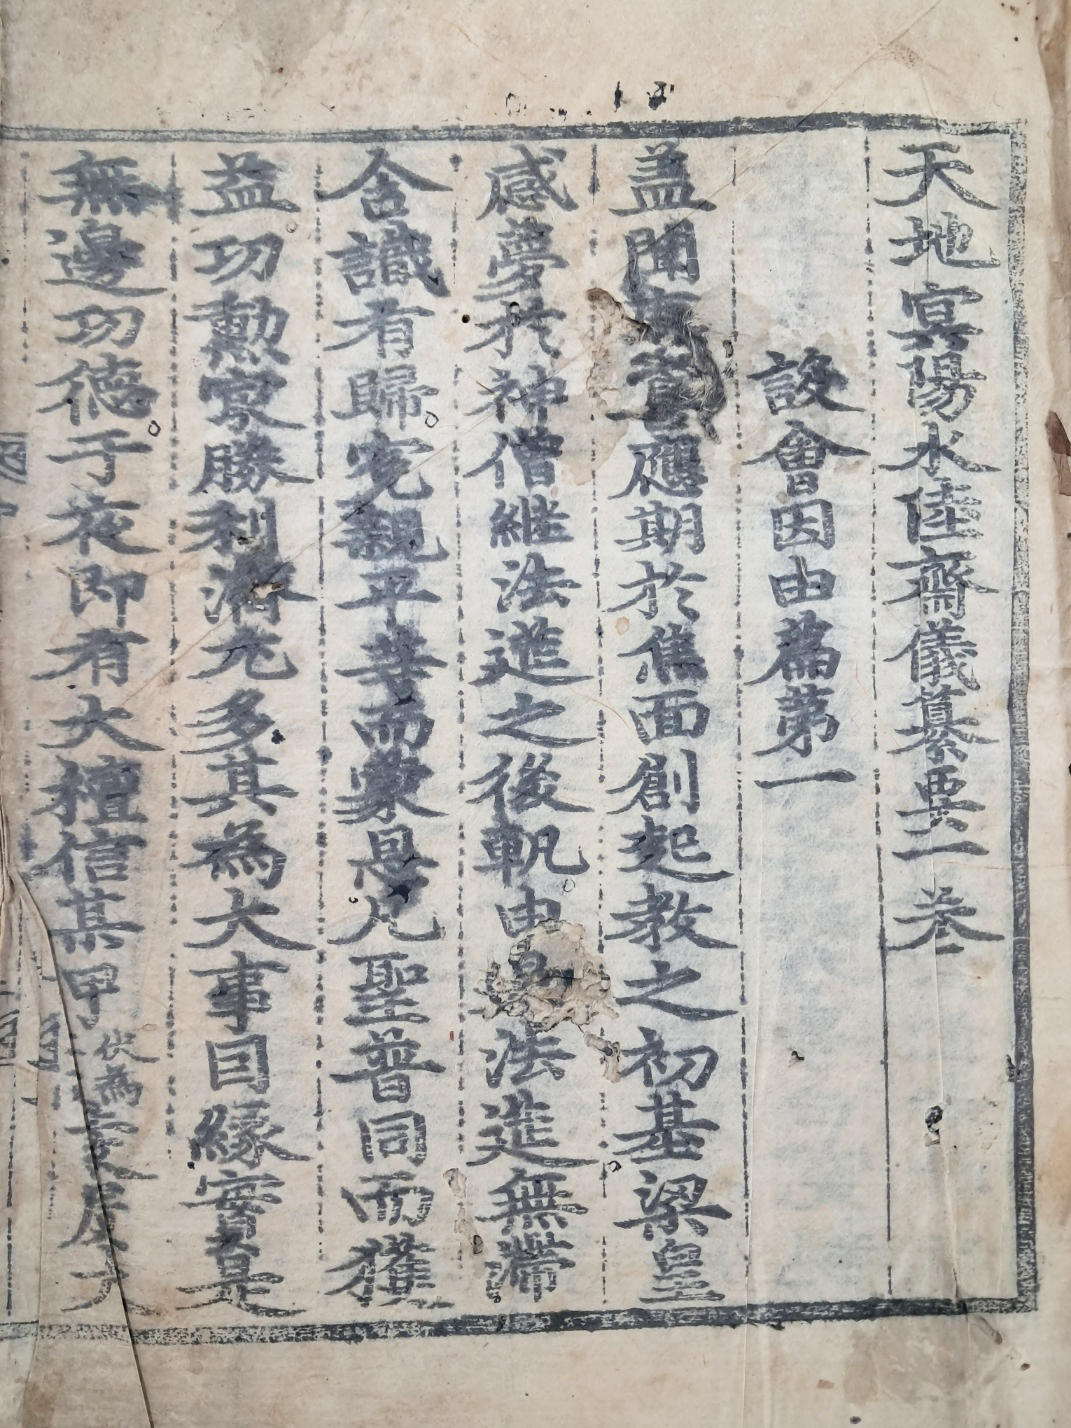 天地冥陽水陸齋儀纂要一卷
設會因由篇第一
盖聞應期於焦面創起教之初基梁皇
感夢於神僧継法筵之後軌由法筵無滯
含識有歸寃親平等而蒙恩凡聖普同而獲
益功勲寔勝利濟尤多其為大事因緣實是
無邊功德于夜即有大檀信某甲伏為